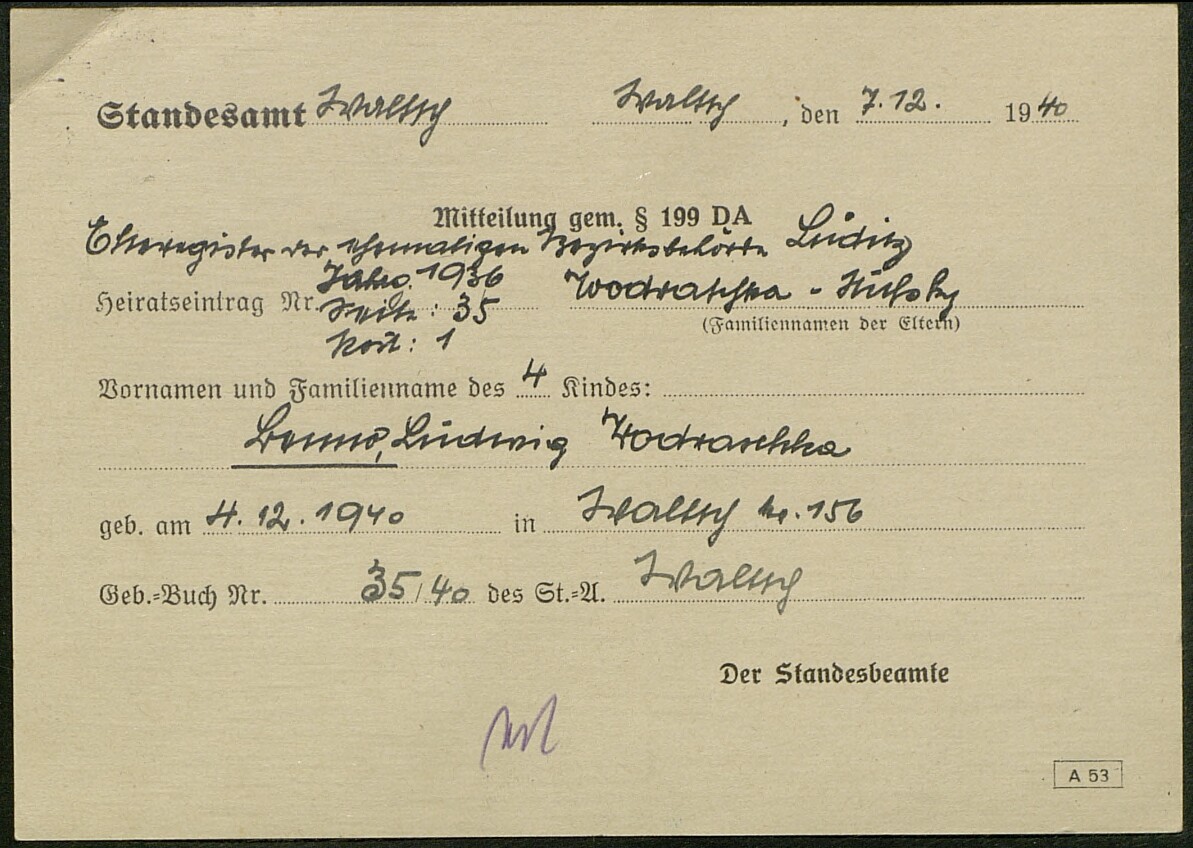 Standesamt Waltsch Waltsch, den 7.12. 1940
Mitteilung gem. § 199 DA
Eheregister der ehemaligen Bezirksbehörde Luditz
Jahrg. 1936
Heiratseintrag Nr. Seite: 35 Wodraschka -
(Familiennamen der Eltern)
Post: 1
Vornamen und Familienname des 4 Kindes:
Benno, Ludwig Wodraschka
geb. am 4.12.1940 in Waltsch Nr. 156
Geb.-Buch Nr. 35/40 des St.-A. Waltsch
Der Standesbeamte
A 53